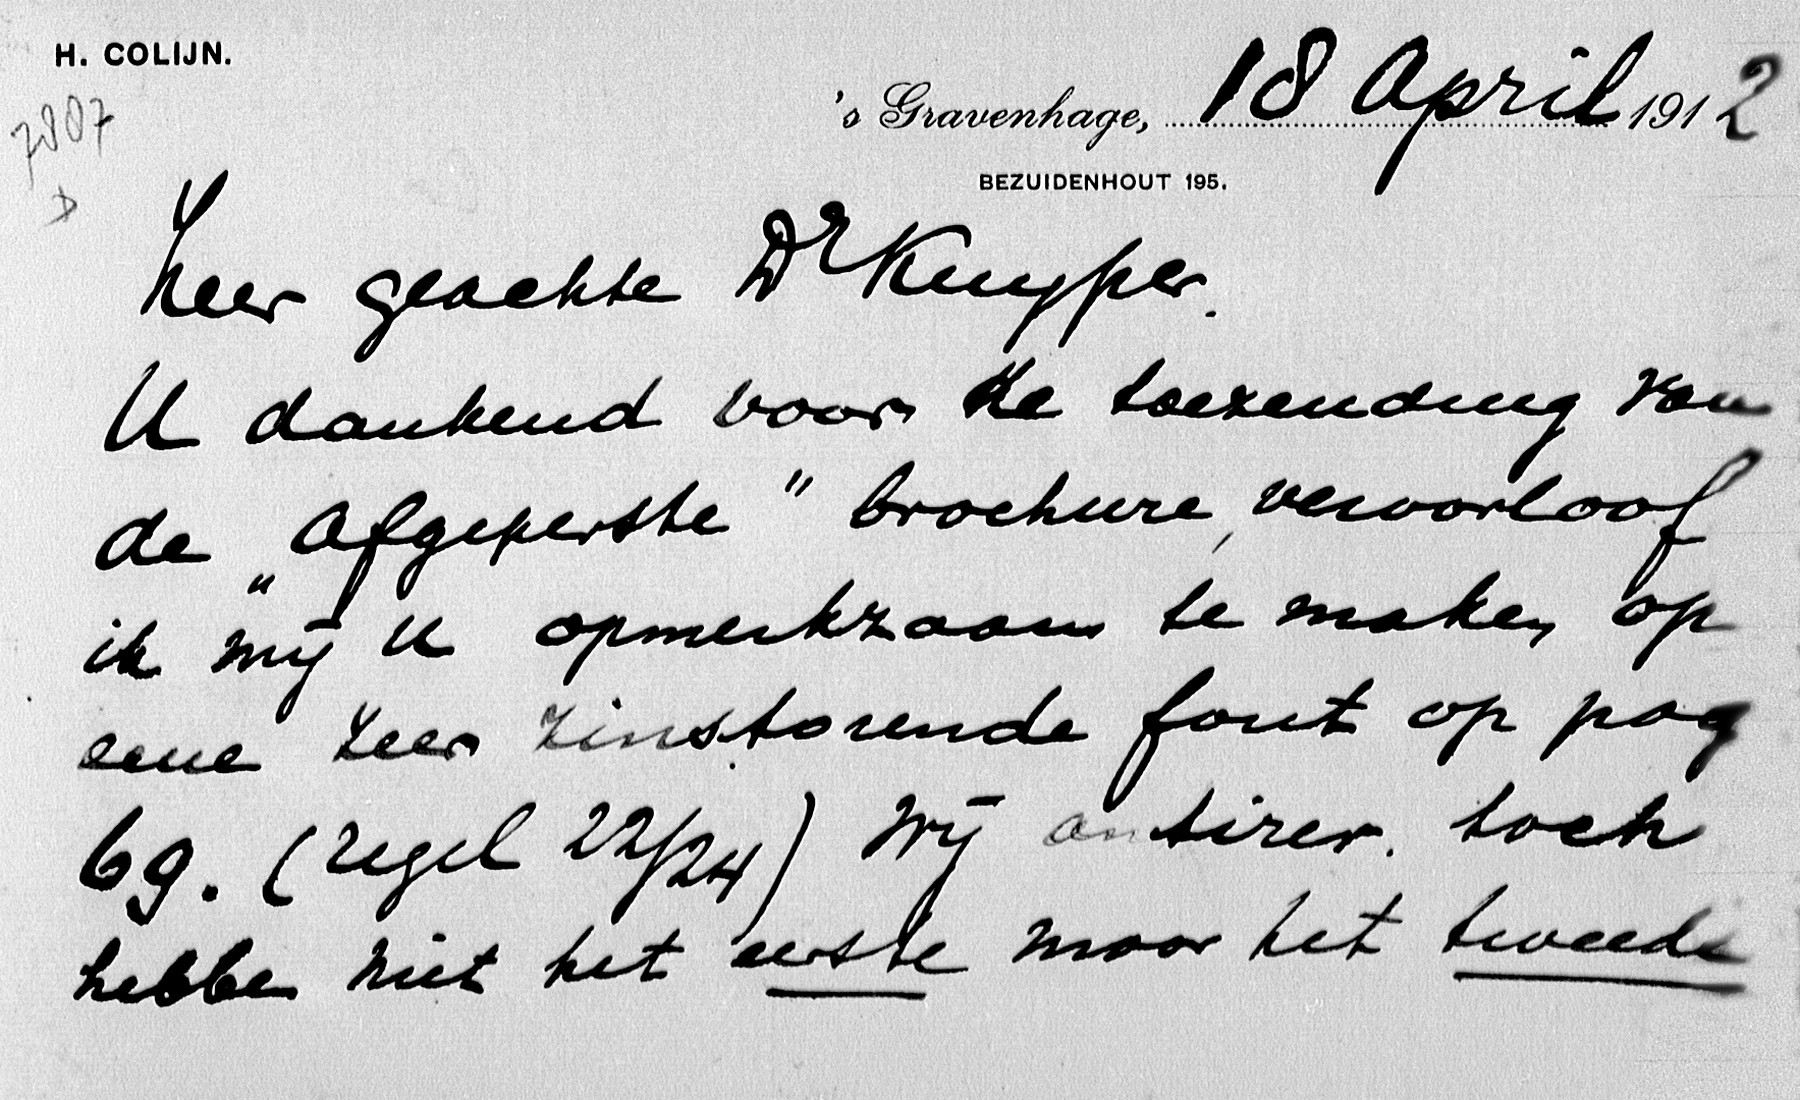 H. COLIJN.
7807
's Gravenhage, 18 April 1912
BEZUIDENHOUT 195.
Zeer geachte Dr Kuyper.
U dankend voor de toezending van
de „Afgeperste" brochure, veroorloof
ik mij U opmerkzaam te maken op
eene zeer zinstorende fout op pag
69. (regel 22/24) Wij antirev. toch
hebben niet het eerste maar het tweede